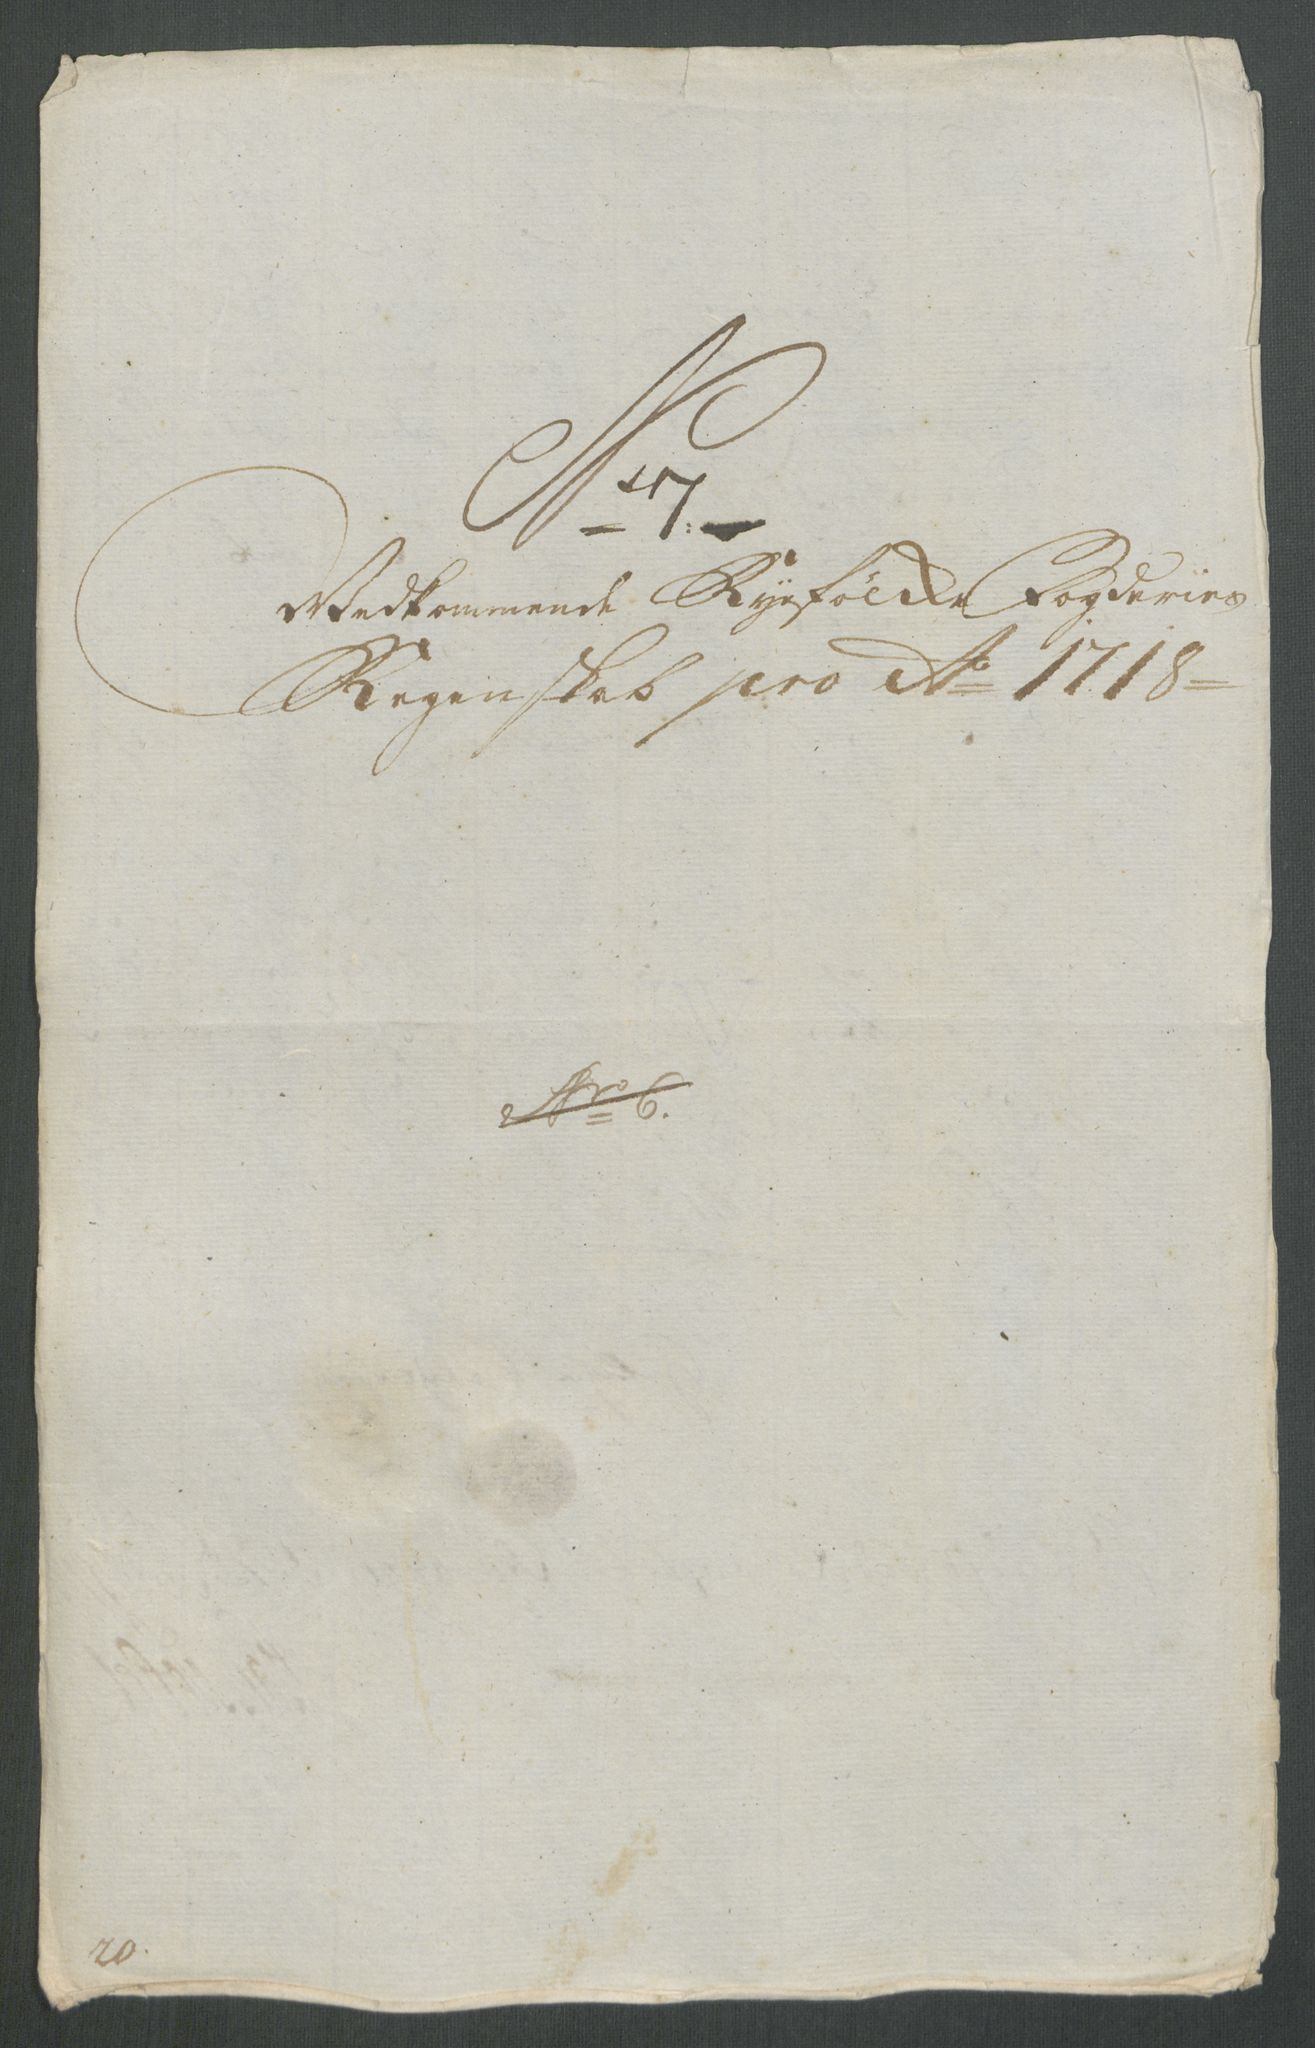 N 7.
Vedkommende Ryefølche Fogderies
Regenskab pro Ao 1718
Nro 6.
20.